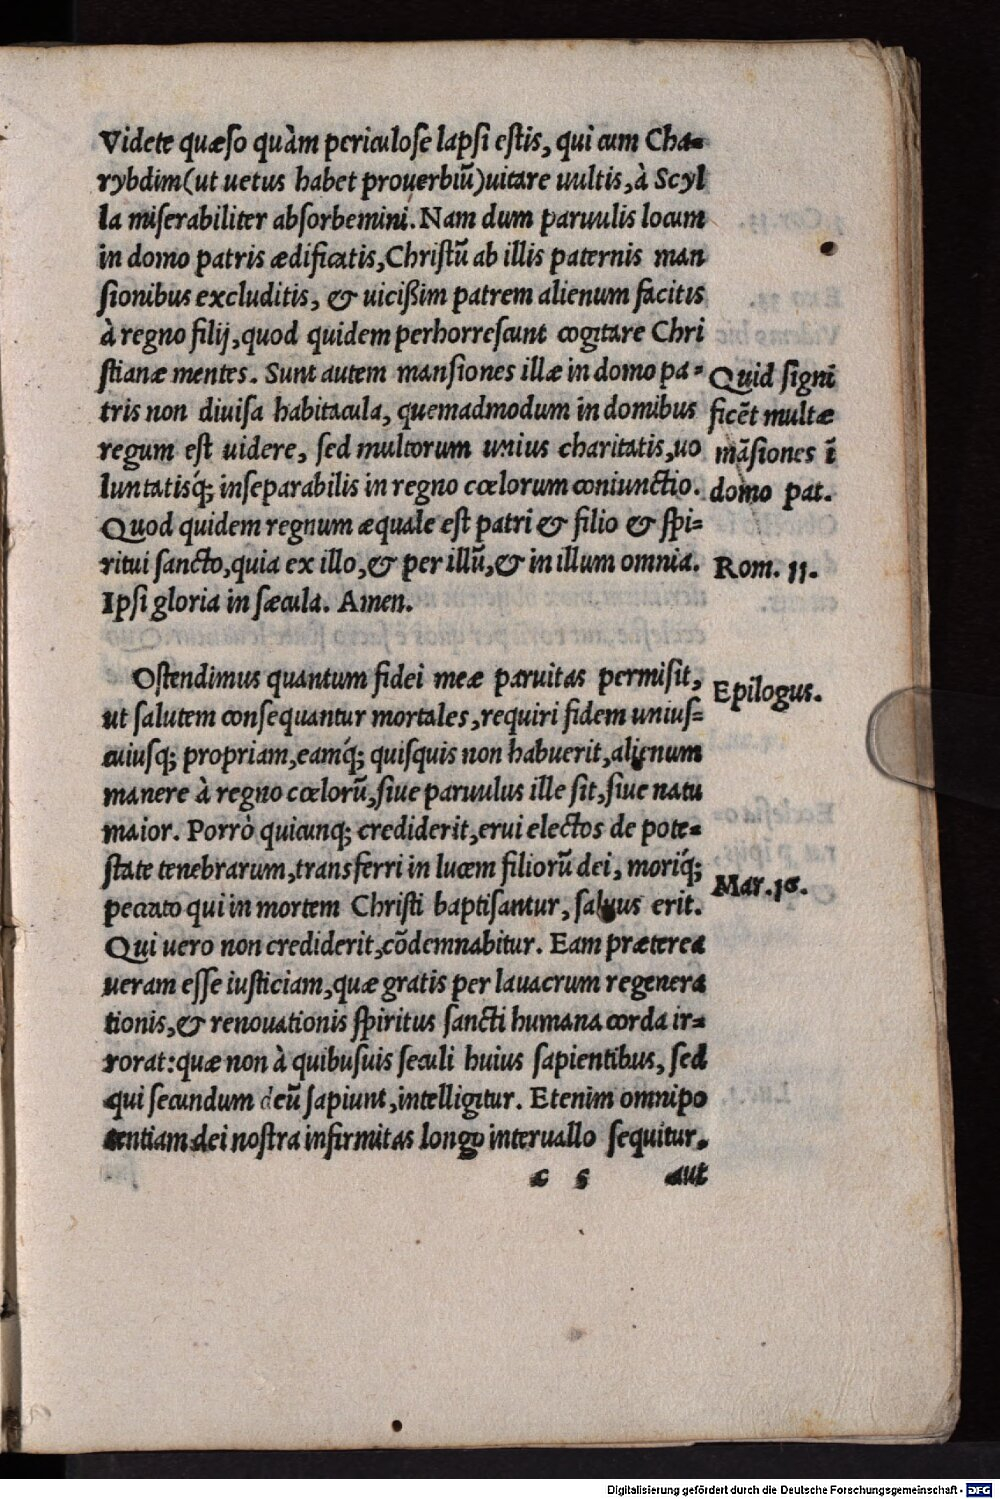 Videte quæso quàm periculose lapsi estis, qui cum Cha=
rybdim(ut uetus habet prouerbiū)uitare uultis,à Scyl
la miserabiliter absorbemini. Nam dum paruulis locum
in domo patris ædificatis,Christū ab illis paternis man
sionibus excluditis, & uicißim patrem alienum facitis
à regno filij,quod quidem perhorrescunt cogitare Chri
stianæ mentes. Sunt autem mansiones illæ in domo pa=
tris non diuisa habitacula, quemadmodum in domibus
regum est uidere, sed multorum unius charitatis,uo
luntatisq́; inseparabilis in regno cœlorum coniunctio.
Quod quidem regnum æquale est patri & filio & spi=
ritui sancto,quia ex illo,& per illū,& in illum omnia.
Ipsi gloria in sæcula. Amen.
Quid signi
ficēt multæ
māsiones ī
domo pat.
Rom. 11.
Ostendimus quantum fidei meæ paruitas permisit,
ut salutem consequantur mortales,requiri fidem unius=
cuiusq; propriam,eamq́; quisquis non habuerit,alienum
manere à regno cœlorū,siue paruulus ille sit,siue natu
maior. Porrò quicunq; crediderit,erui electos de pote=
state tenebrarum,transferri in lucem filiorū dei, moriq́;
peccato qui in mortem Christi baptisantur, saluus erit.
Qui uero non crediderit,cōdemnabitur. Eam præterea
ueram esse iusticiam,quæ gratis per lauacrum regenera
tionis,& renouationis spiritus sancti humana corda ir=
rorat:quæ non à quibusuis seculi huius sapientibus, sed
qui secundum deū sapiunt,intelligitur. Etenim omnipo
tentiam dei nostra infirmitas longo interuallo sequitur,
Epilogus.
Mar.16.
c 5 aut
Digitalisierung gefördert durch die Deutsche Forschungsgemeinschaft - DFG